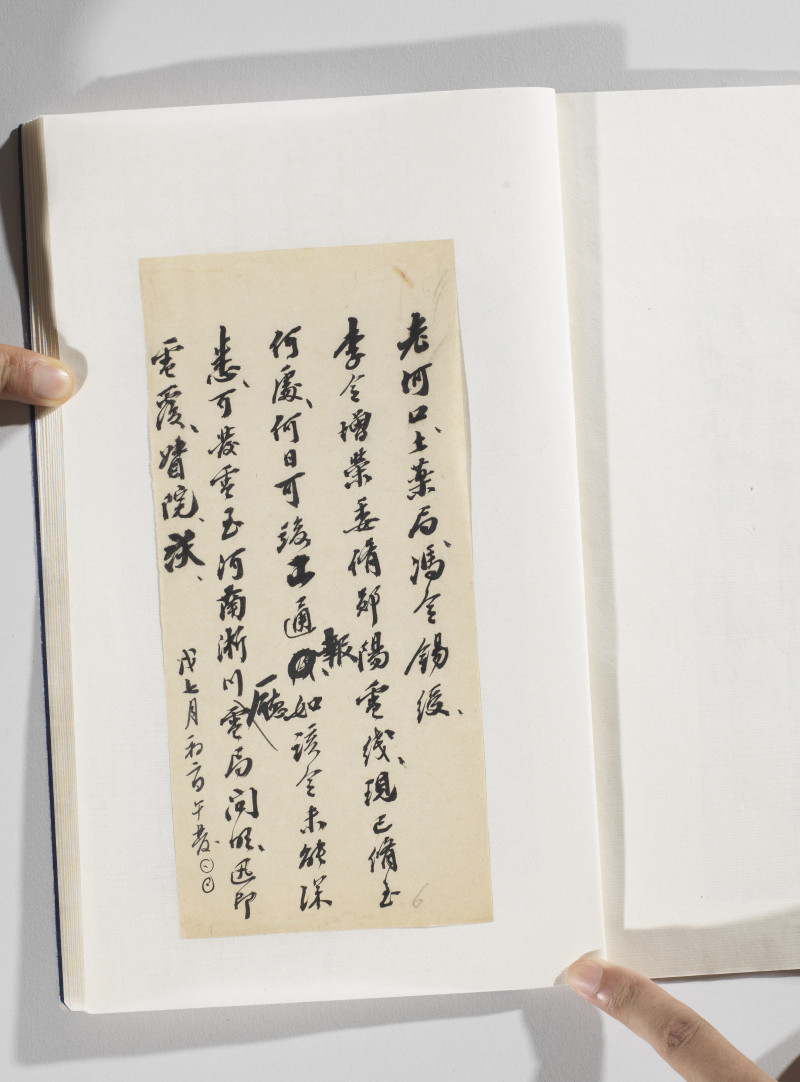 老河口土藥局馮令錫綬、
李令增榮委脩鄖陽電綫、現已脩至
何處、何日可竣工通報、如該令未能深
悉、可發電至河南淅川廳電局問明、迅即
電覆、督院、沃、
戊七月初二日午發
6